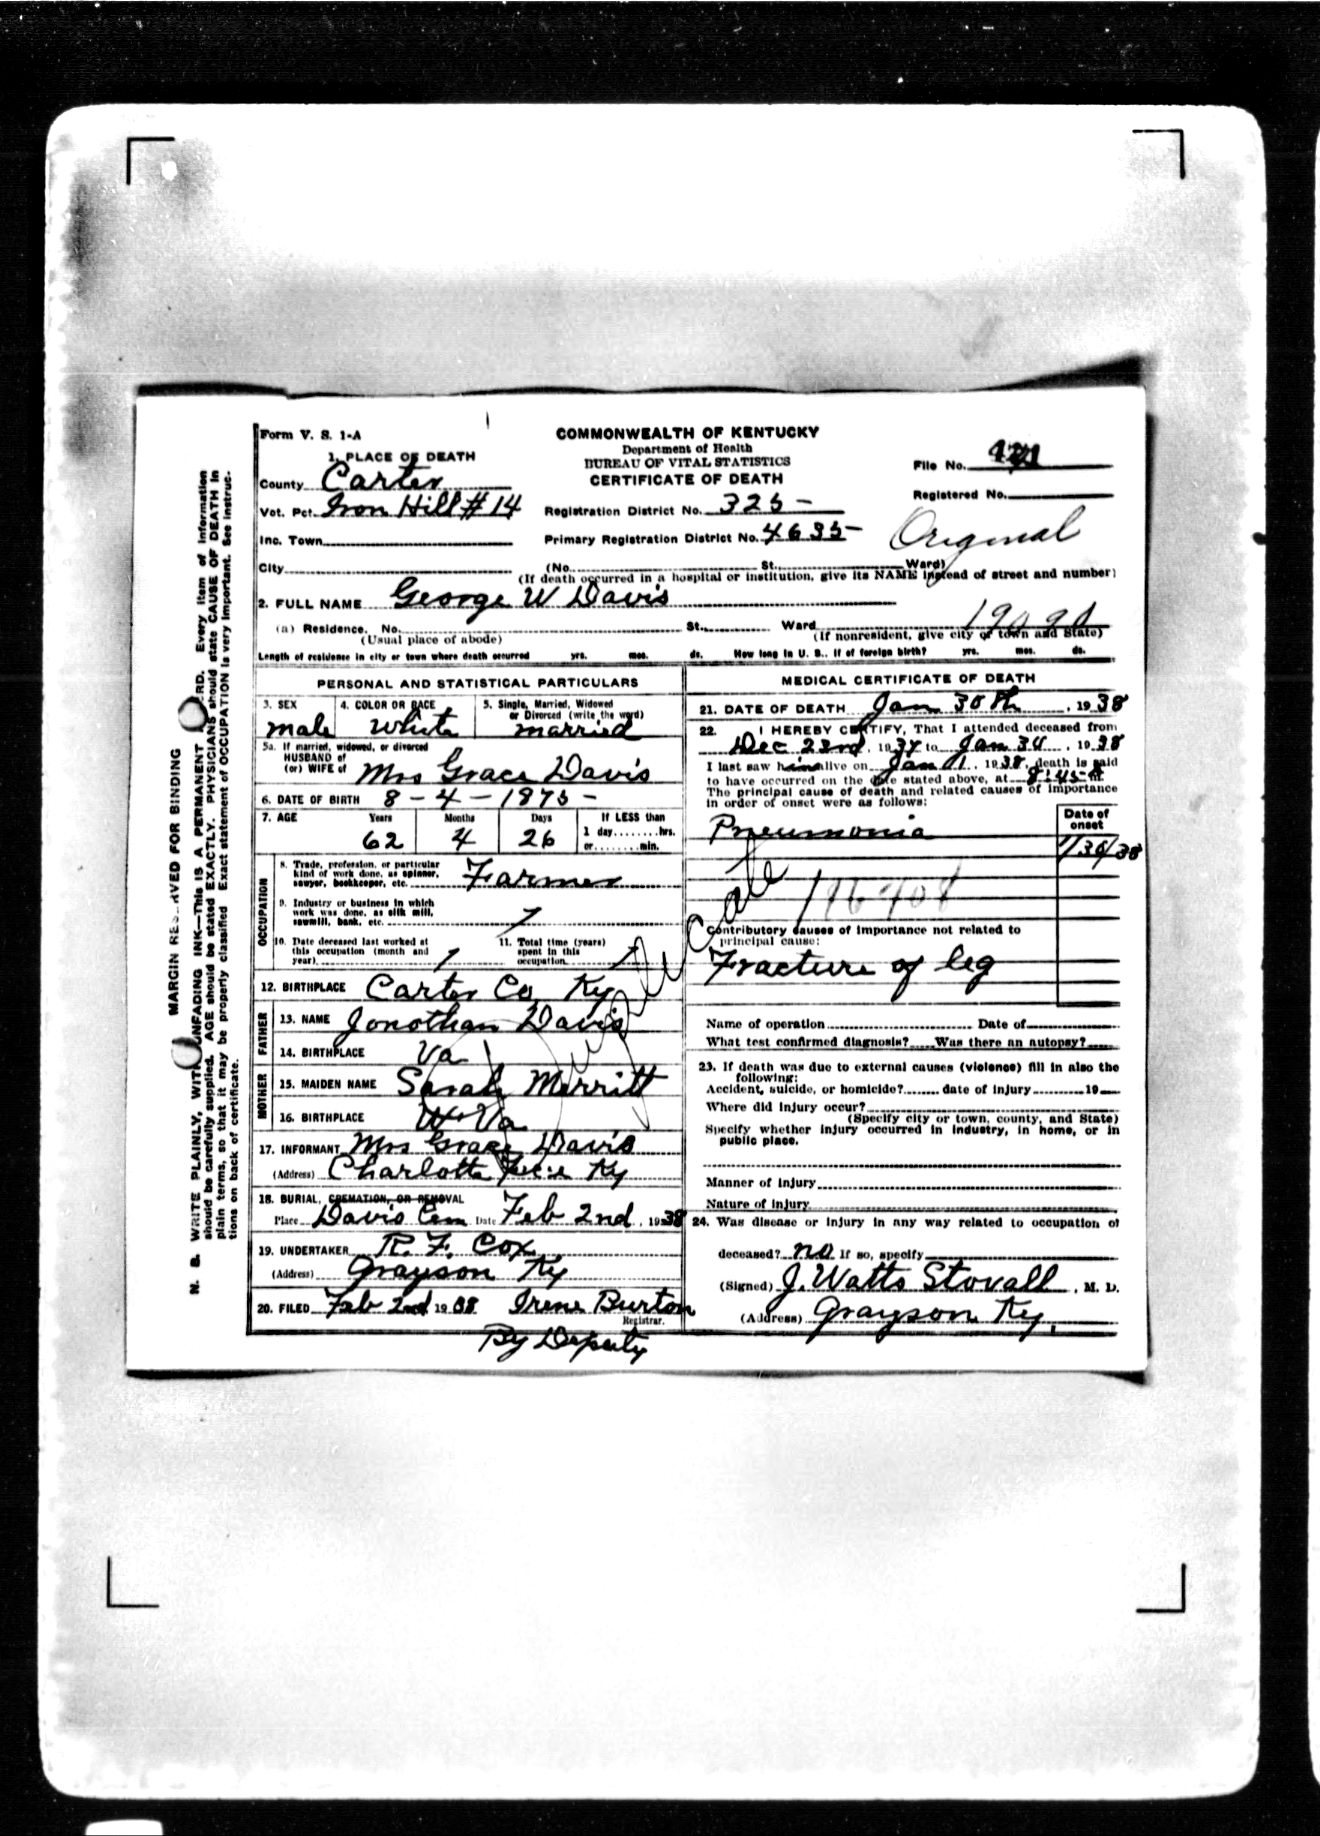 Form V. S. 1-A
COMMONWEALTH OF KENTUCKY
Department of Health
BUREAU OF VITAL STATISTICS
CERTIFICATE OF DEATH
File No.
Registered No.
Original
1. PLACE OF DEATH
County Carter
Vot. Pct. Iron Hill #14
Registration District No. 325-
Inc. Town
Primary Registration District No. 4635-
City (No. St. Ward)
(If death occurred in a hospital or institution, give its NAME instead of street and number)
2. FULL NAME George W Davis
(a) Residence. No. St. Ward
(Usual place of abode) (If nonresident, give city or town and State)
Length of residence in city or town where death occurred yrs. mos. ds. How long in U. S., if of foreign birth? yrs. mos. ds.
PERSONAL AND STATISTICAL PARTICULARS
3. SEX 4. COLOR OR RACE 5. Single, Married, Widowed
or Divorced (write the word)
male White married
5a. If married, widowed, or divorced
HUSBAND of
(or) WIFE of Mrs Grace Davis
6. DATE OF BIRTH 8-4-1875-
7. AGE Years Months Days If LESS than
1 day........hrs.
or........min.
62 4 26
OCCUPATION
8. Trade, profession, or particular
kind of work done, as spinner,
sawyer, bookkeeper, etc. Farmer
9. Industry or business in which
work was done, as silk mill,
sawmill, bank, etc.
10. Date deceased last worked at
this occupation (month and
year)
11. Total time (years)
spent in this
occupation
12. BIRTHPLACE Carter Co Ky
FATHER
13. NAME Jonothan Davis
14. BIRTHPLACE Va
MOTHER
15. MAIDEN NAME Sarah Merritt
16. BIRTHPLACE W Va
17. INFORMANT Mrs Grace Davis
(Address) Charlotte Ky
18. BURIAL, CREMATION, OR REMOVAL
Place Davis Cem Date Feb 2nd, 1938
19. UNDERTAKER R. F. Cox
(Address) Grayson Ky
20. FILED Feb 2nd 1938 Irene Burton
Registrar.
By Deputy
Duplicate
MEDICAL CERTIFICATE OF DEATH
21. DATE OF DEATH Jan 30th, 1938
22. I HEREBY CERTIFY, That I attended deceased from
Dec 23rd, 1937 to Jan 30, 1938
I last saw him alive on Jan 01, 1938, death is said
to have occurred on the date stated above, at 8:45 A m.
The principal cause of death and related causes of importance
in order of onset were as follows:
Date of
onset
Pneumonia
1/30/38
Contributory causes of importance not related to
principal cause:
Fracture of leg
Name of operation Date of
What test confirmed diagnosis? Was there an autopsy?
23. If death was due to external causes (violence) fill in also the
following:
Accident, suicide, or homicide? date of injury 19
Where did injury occur?
(Specify city or town, county, and State)
Specify whether injury occurred in industry, in home, or in
public place.
Manner of injury
Nature of injury
24. Was disease or injury in any way related to occupation of
deceased? no If so, specify
(Signed) J. Watts Stovall, M. D.
(Address) Grayson Ky.
MARGIN RESERVED FOR BINDING
N. B. WRITE PLAINLY, WITH UNFADING INK—THIS IS A PERMANENT RECORD. Every item of information
should be carefully supplied. AGE should be stated EXACTLY. PHYSICIANS should state CAUSE OF DEATH in
plain terms, so that it may be properly classified. Exact statement of OCCUPATION is very important. See instruc-
tions on back of certificate.